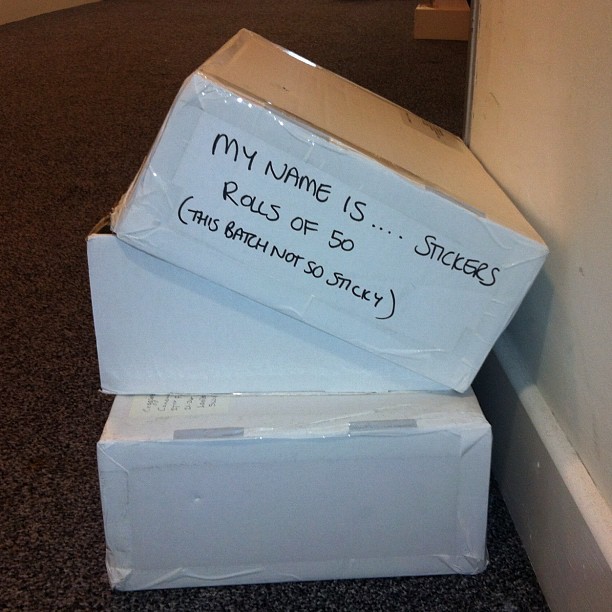 MY NAME IS.... STICKERS
ROLLS OF 50
(THIS BATCH NOT SO STICKY)